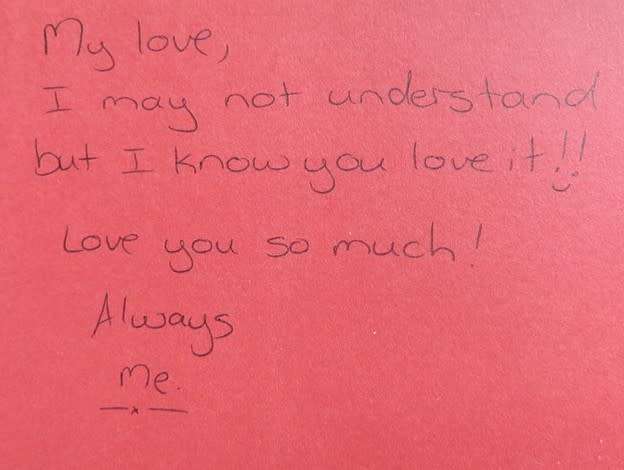 My love,
I may not understand
but I know you love it!!
Love you so much!
Always
Me.